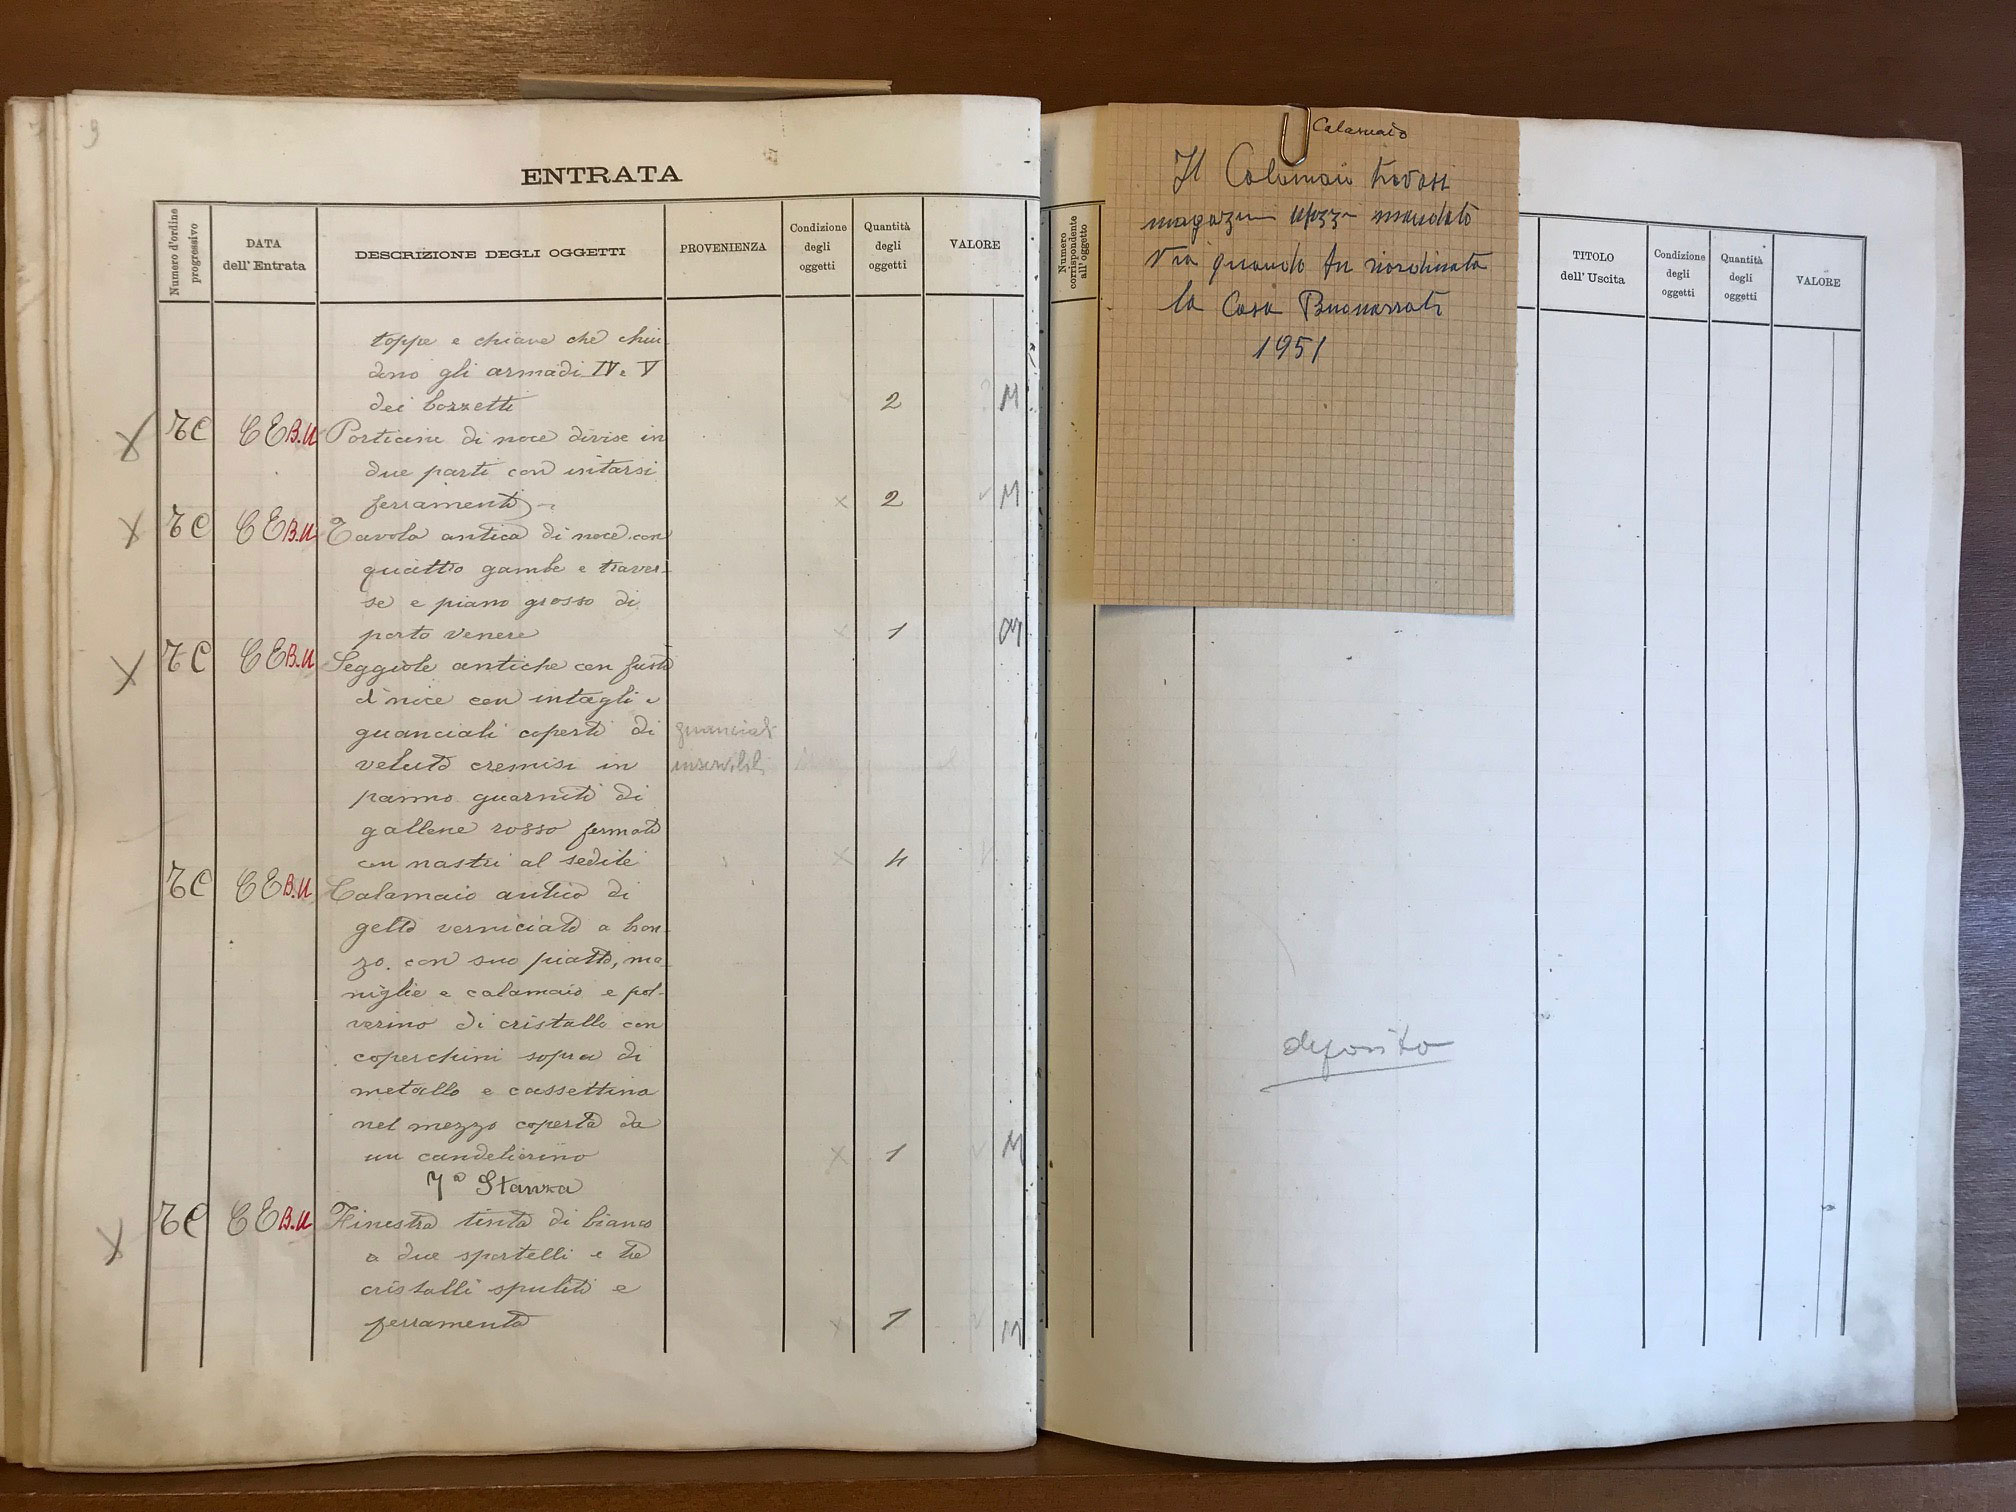 9
ENTRATA
Numero d'ordine progressivo
DATA dell'Entrata
DESCRIZIONE DEGLI OGGETTI
PROVENIENZA
Condizione degli oggetti
Quantità degli oggetti
VALORE
toppe e chiave che chiu
dono gli armadi IV e V
dei bozzetti 2 M
B.U Porticine di noce divise in
due parti con intarsi
ferramenti 2 M
B.U Tavola antica di noce con
quattro gambe e traver-
se e piano grosso di
porto venere 1 M
B.U Seggiole antiche con fusti
di noce con intagli e
guanciali coperti di guanciali
veluto cremisi in inservibili
panno guarniti di
gallone rosso fermati
con nastri al sedile 4
B.U Calamaio antico di
getto verniciato a bron-
zo con suo piatto, ma-
niglie e calamaio e pol-
verino di cristallo con
coperchini sopra di
metallo e cassettina
nel mezzo coperta da
un candelierino 1 M
7ª Stanza
B.U Finestra tinta di bianco
a due sportelli e tre
cristalli spuliti e
ferramenta 1 M
Calamaio
Il Calamaio trovasi
magazzini mandato
via quando fu riordinata
la Casa Buonarroti
1951
Numero corrispondente all'oggetto
TITOLO dell'Uscita
Condizione degli oggetti
Quantità degli oggetti
VALORE
deposito